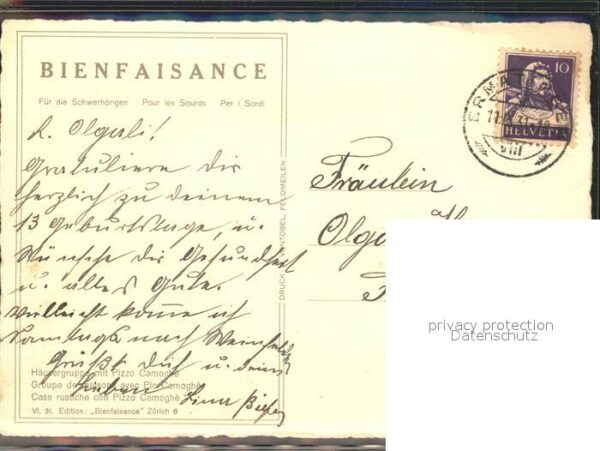 BIENFAISANCE
Für die Schwerhörigen Pour les Sourds Per i Sordi
L. Olgerli!
Gratuliere dir
herzlich zu deinem
13 Geburtstage, u.
Wünsche dir Gesundheit
u. alles Gute.
Vielleicht komme ich
Samtags nach Weinfelden
Grüsst dich u. deine
Lieben
Häusergruppe mit Pizzo Camoghè
Groupe de maisons avec Pic Camoghè
Case rustiche con Pizzo Camoghè
VI. 31. Edition: „Bienfaisance" Zürich 6
DRUCK VONTOBEL, FELDMEILEN
10
HELVETIA
VIII
Fräulein
Olga
privacy protection
Datenschutz